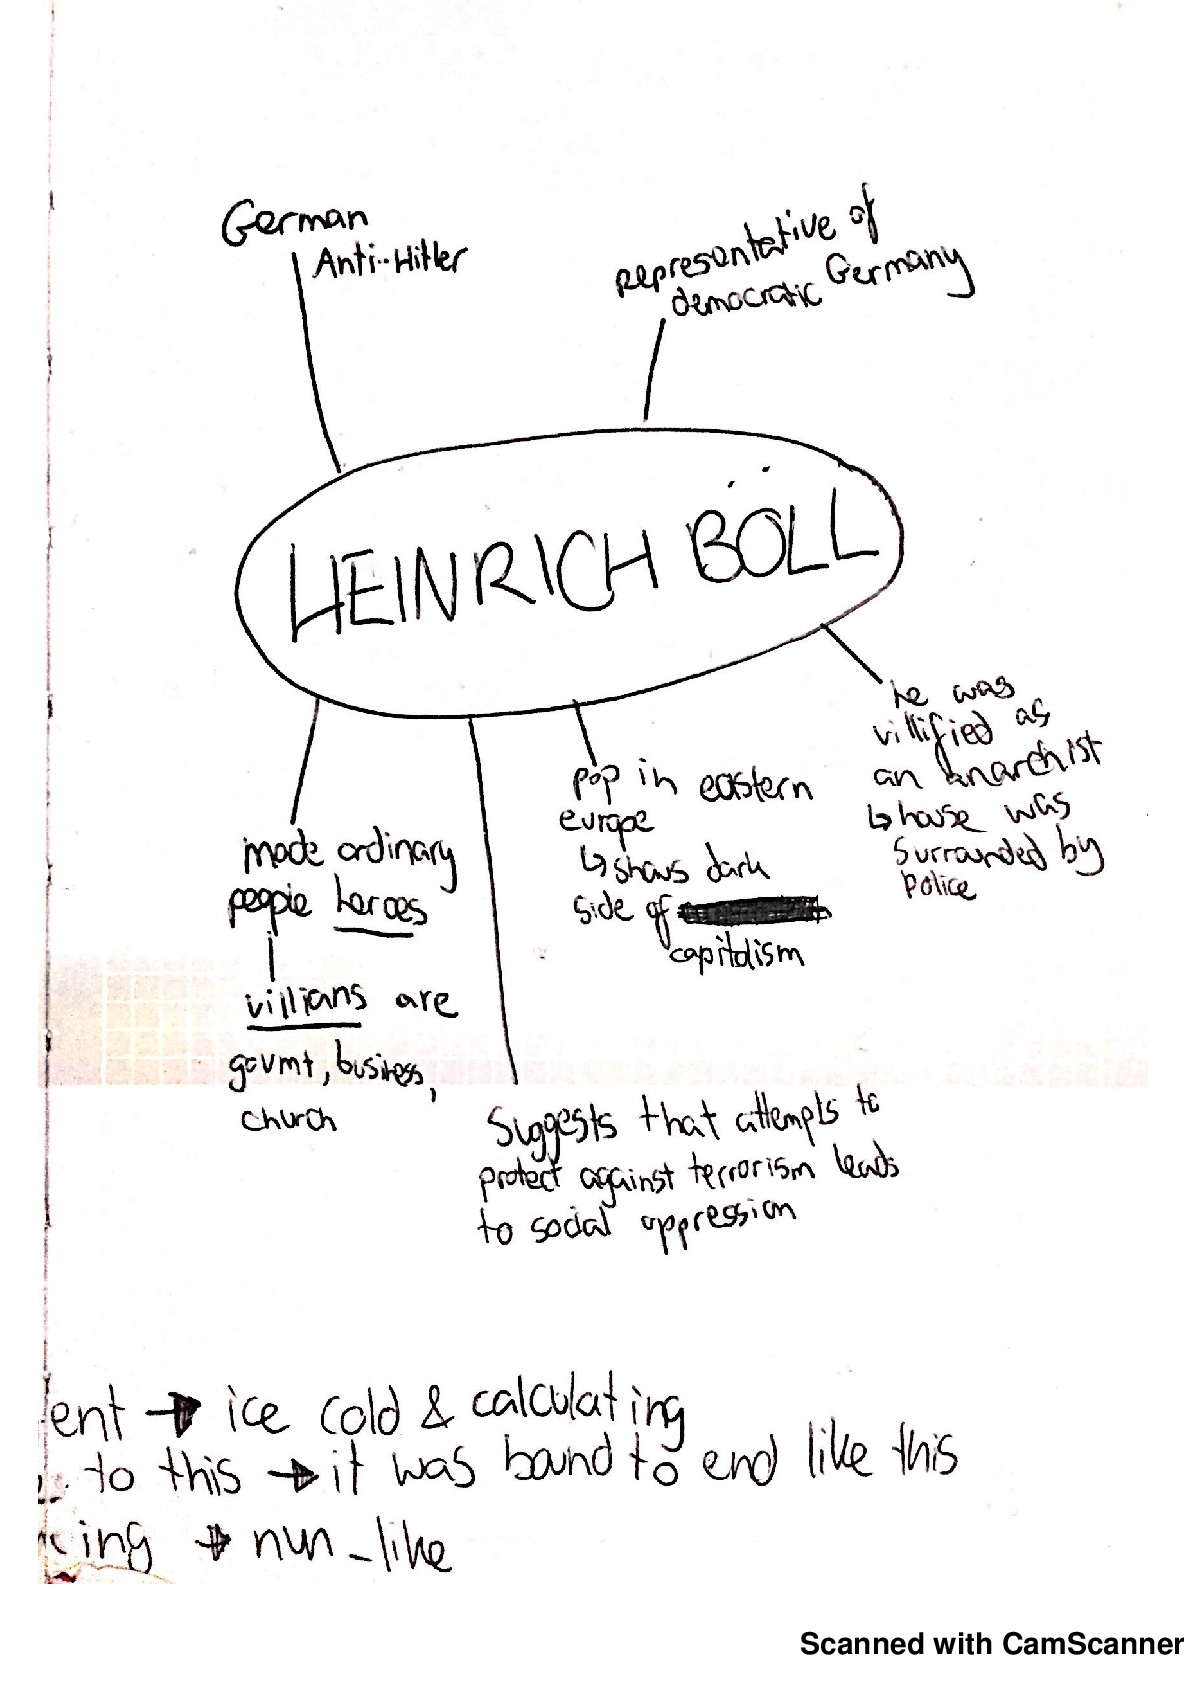 German
Anti-Hitler
representative of
democratic Germany
HEINRICH BÖLL
he was
villified as
an anarchist
↳ house was
surrounded by
police
pop in eastern
europe
↳ shows dark
side of
capitalism
made ordinary
people heroes
villians are
govmt, business,
church
Suggests that attempts to
protect against terrorism leads
to social oppression
ent → ice cold & calculating
to this → it was bound to end like this
cing → nun-like
Scanned with CamScanner